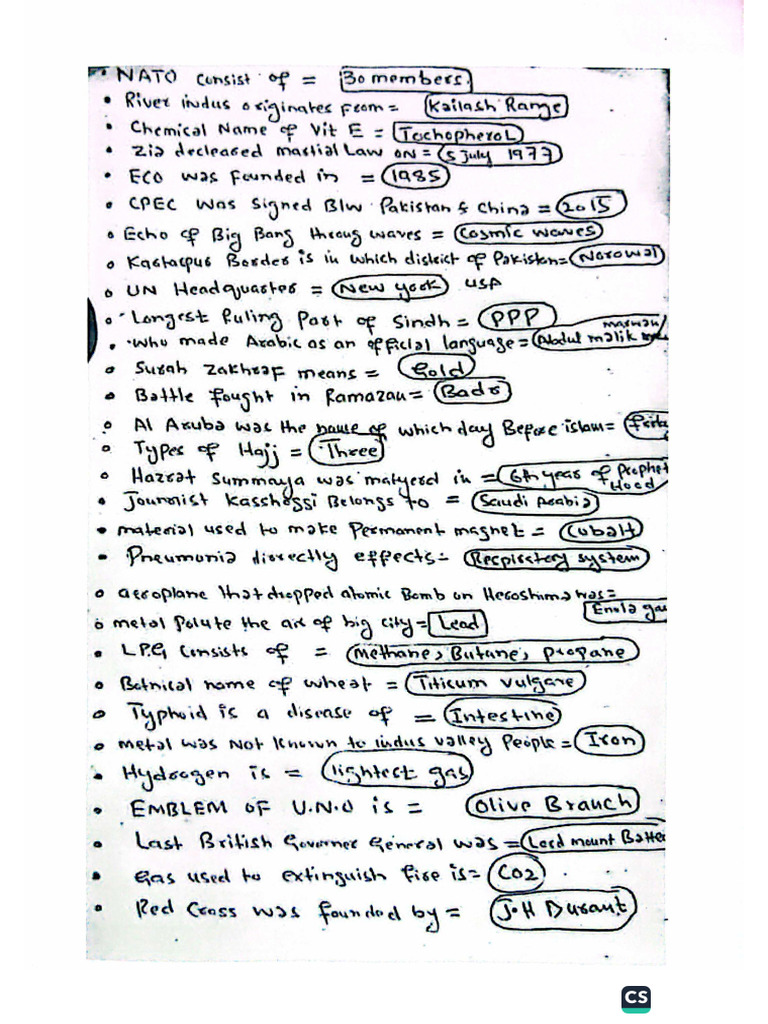 • NATO consist of = 30 members.
• River indus originates from = Kailash Range
• Chemical Name of Vit E = Tochopherol
• Zia decleased martial Law on = 5 July 1977
• ECO was founded in = 1985
• CPEC was signed B/w Pakistan & China = 2015
• Echo of Big Bang throug waves = Cosmic waves
• Kartarpur Border is in which district of Pakistan = Narowal
• UN Headquarter = New york USA
• Longest Ruling Part of Sindh = PPP
• Who made Arabic as an official language = Abdul malik
• Surah Zakhraf means = Gold
• Battle fought in Ramazan = Badr
• Al Aruba was the name of which day Before islam =
• Types of Hajj = Three
• Hazrat Summaya was matyerd in = 6th year of Prophet Hood
• Journlist Kasshoggi Belongs to = Saudi Arabia
• material used to make Permanent magnet = Cobalt
• Pneumonia dirrectly effects = Respiratory system
• aeroplane that dropped atomic Bomb on Heroshima was =
Enola gay
• metal Polute the air of big city = Lead
• L.P.G Consists of = Methane, Butane, propane
• Botnical name of wheat = Titicum vulgare
• Typhoid is a disease of = Intestine
• metal was Not Known to indus valley People = Iron
• Hydrogen is = lightest gas
• EMBLEM OF U.N.O is = Olive Branch
• Last British Governer General was = Lord mount Batten
• Gas used to extinguish fire is = CO2
• Red Cross was founded by = J.H Durant
CS